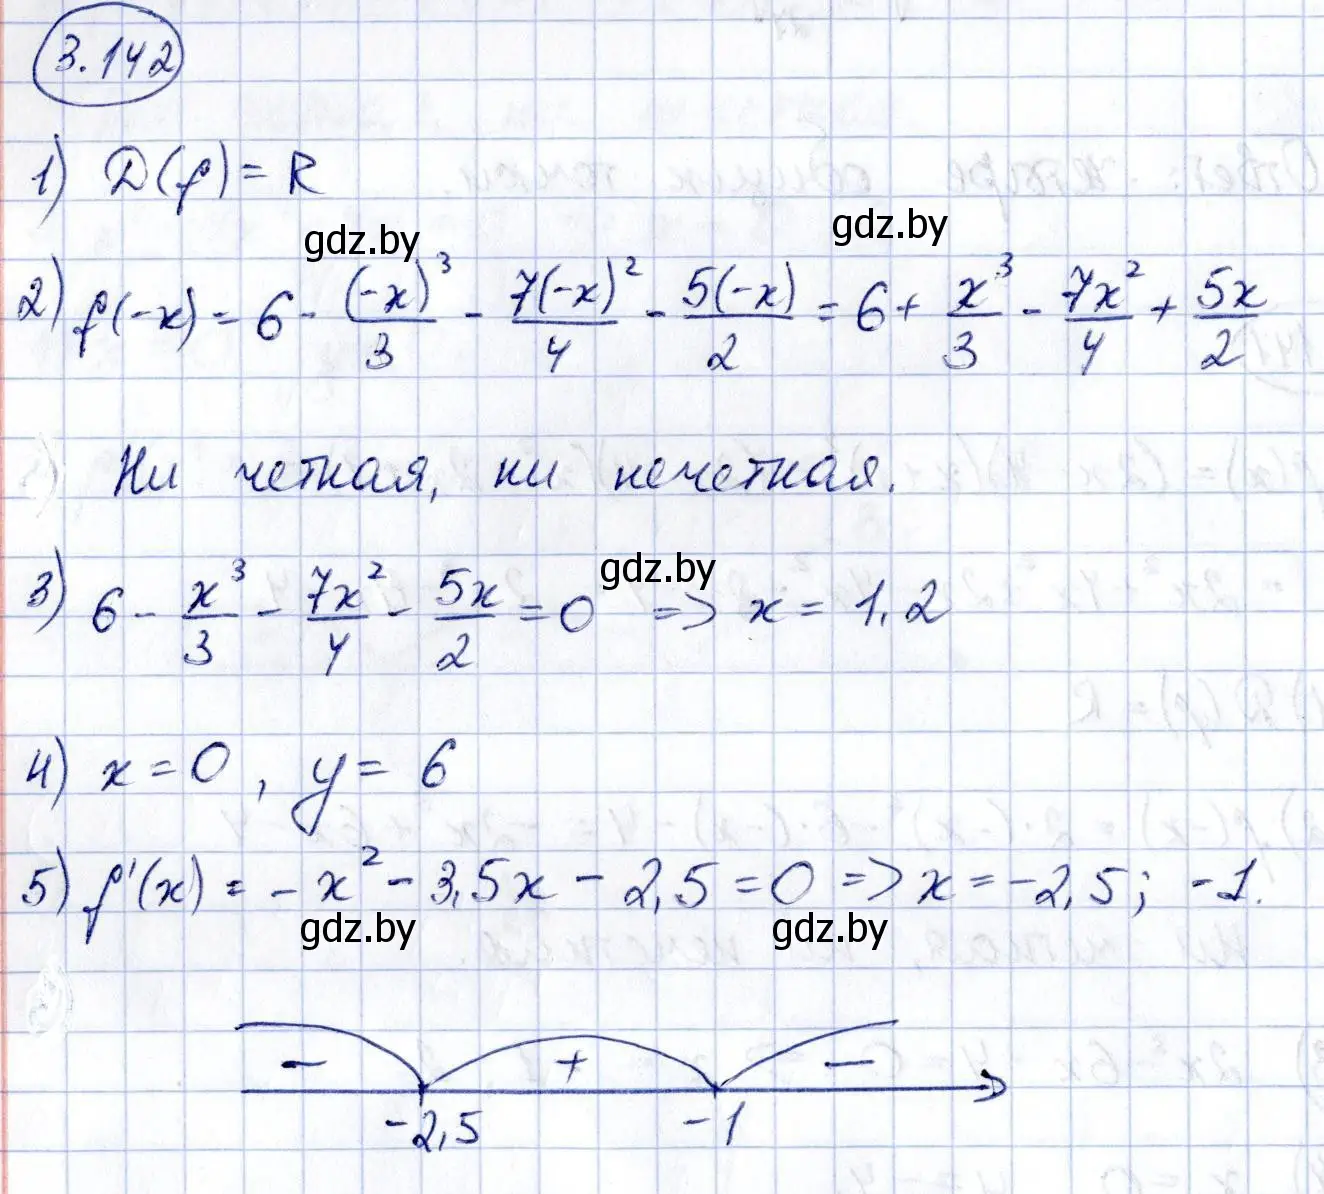 3.142
1) D(f) = R
gdz.by gdz.by
2) f(-x) = 6 - (-x)^3/3 - 7(-x)^2/4 - 5(-x)/2 = 6 + x^3/3 - 7x^2/4 + 5x/2
Ни четная, ни нечетная.
gdz.by
3) 6 - x^3/3 - 7x^2/4 - 5x/2 = 0 => x = 1.2
4) x = 0, y = 6
5) f'(x) = -x^2 - 3,5x - 2,5 = 0 => x = -2,5; -1.
gdz.by gdz.by
- + -
-2,5 -1